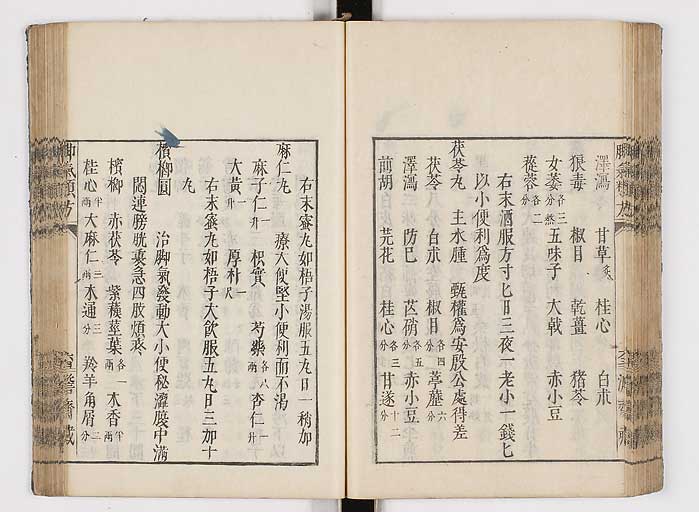 澤瀉 甘草炙 桂心 白朮
狼毒 椒目 乾薑 猪苓
女萎各三分 五味子 大戟 赤小豆
蓯蓉各二分
右末酒服方寸匕日三夜一老小一錢匕
以小便利爲度
茯苓丸 主水腫 甄權爲安殷公處得差
茯苓八分 白朮 椒目各四分 葶藶六分
澤瀉 防巳 芒硝各五分 赤小豆
前胡 芫花 桂心各三分 甘遂十二分
右末蜜丸如梧子湯服五丸日一稍加
麻仁丸 療大便堅小便利而不渴
麻子仁一升 枳實 芍藥各八 杏仁一升
大黃一 厚朴一尺
右末蜜丸如梧子大飲服五丸日三加十
丸
檳榔圓 治脚氣發動大小便秘澀腹中滿
悶連膀胱裏急四肢煩疼
檳榔 赤茯苓 紫蘇莖葉各一兩 木香半兩
桂心半兩 大麻仁三兩 木通三分 羚羊角屑二分
脚氣類方